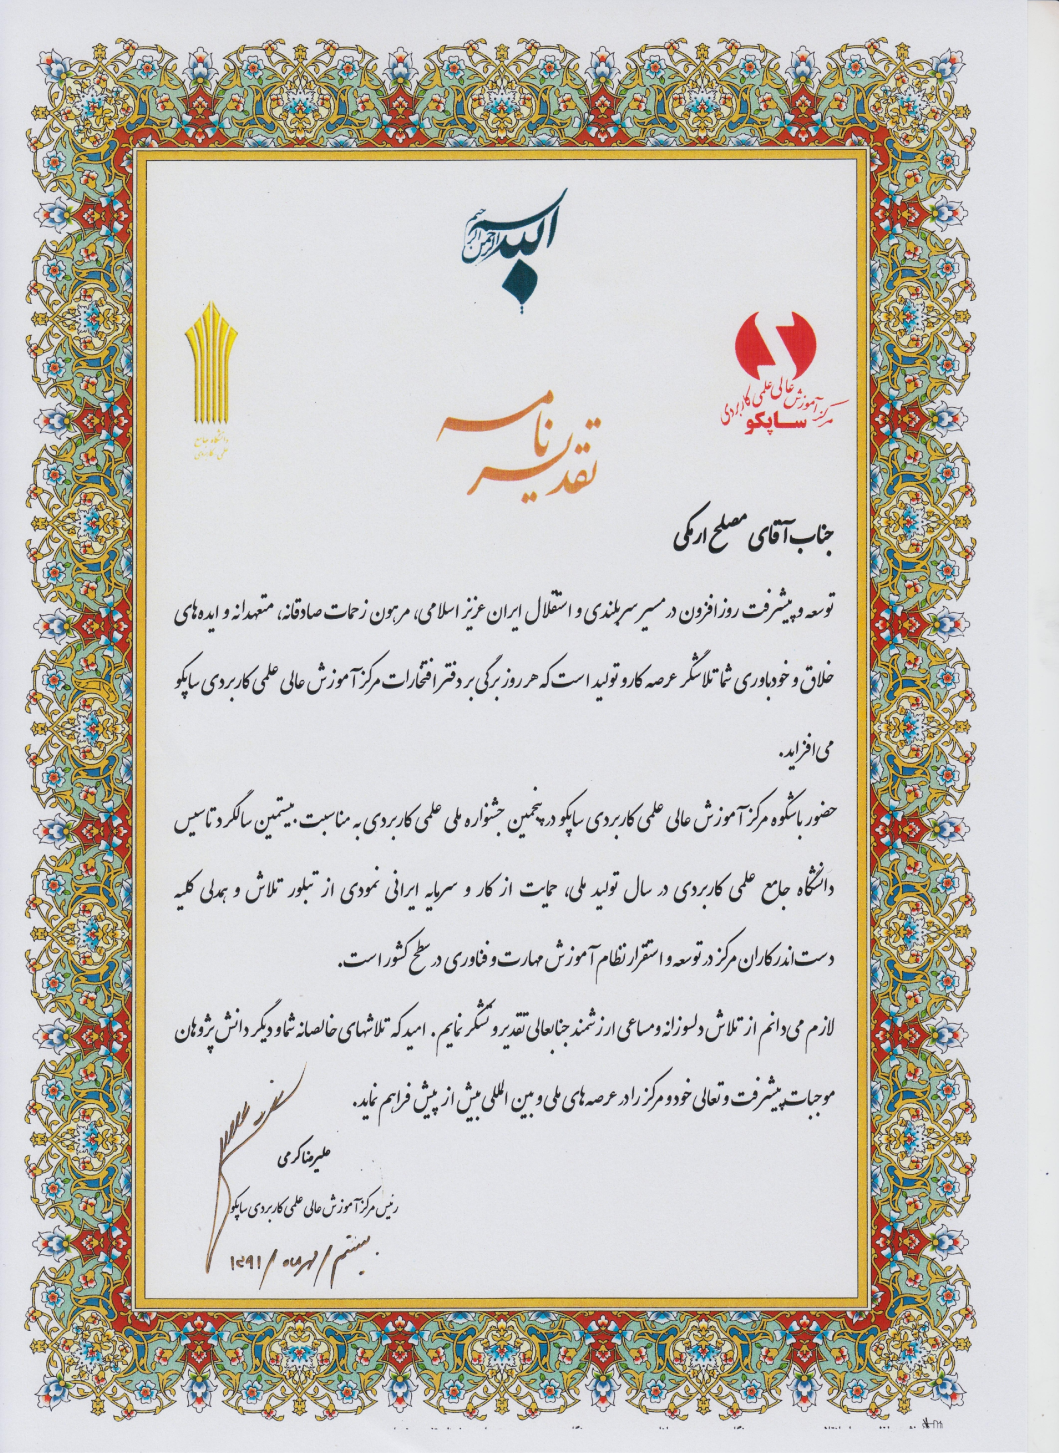 بسم الله الرحمن الرحیم
مرکز آموزش عالی علمی کاربردی
ساپکو
دانشگاه جامع
علمی کاربردی
تقدیر نامه
جناب آقای مصلح ارمکی
توسعه و پیشرفت روز افزون در مسیر سربلندی و استقلال ایران عزیز اسلامی، مرهون زحمات صادقانه، متعهدانه و ایده های
خلاق و خودباوری شما تلاشگر عرصه کار و تولید است که هر روز برگی بر دفتر افتخارات مرکز آموزش عالی علمی کاربردی ساپکو
می افزاید.
حضور باشکوه مرکز آموزش عالی علمی کاربردی ساپکو در پنجمین جشنواره ملی علمی کاربردی به مناسبت بیستمین سالگرد تاسیس
دانشگاه جامع علمی کاربردی در سال تولید ملی، حمایت از کار و سرمایه ایرانی نمودی از تبلور تلاش و همدلی کلیه
دست اندرکاران مرکز در توسعه و استقرار نظام آموزش مهارت و فناوری در سطح کشور است.
لازم می دانم از تلاش دلسوزانه و مساعی ارزشمند جنابعالی تقدیر و تشکر نمایم. امید که تلاشهای خالصانه شما و دیگر دانش پژوهان
موجبات پیشرفت و تعالی خود و مرکز را در عرصه های ملی و بین المللی بیش از پیش فراهم نماید.
علیرضا کرمی
رئیس مرکز آموزش عالی علمی کاربردی ساپکو
بیستم / مهرماه / ۱۳۹۱